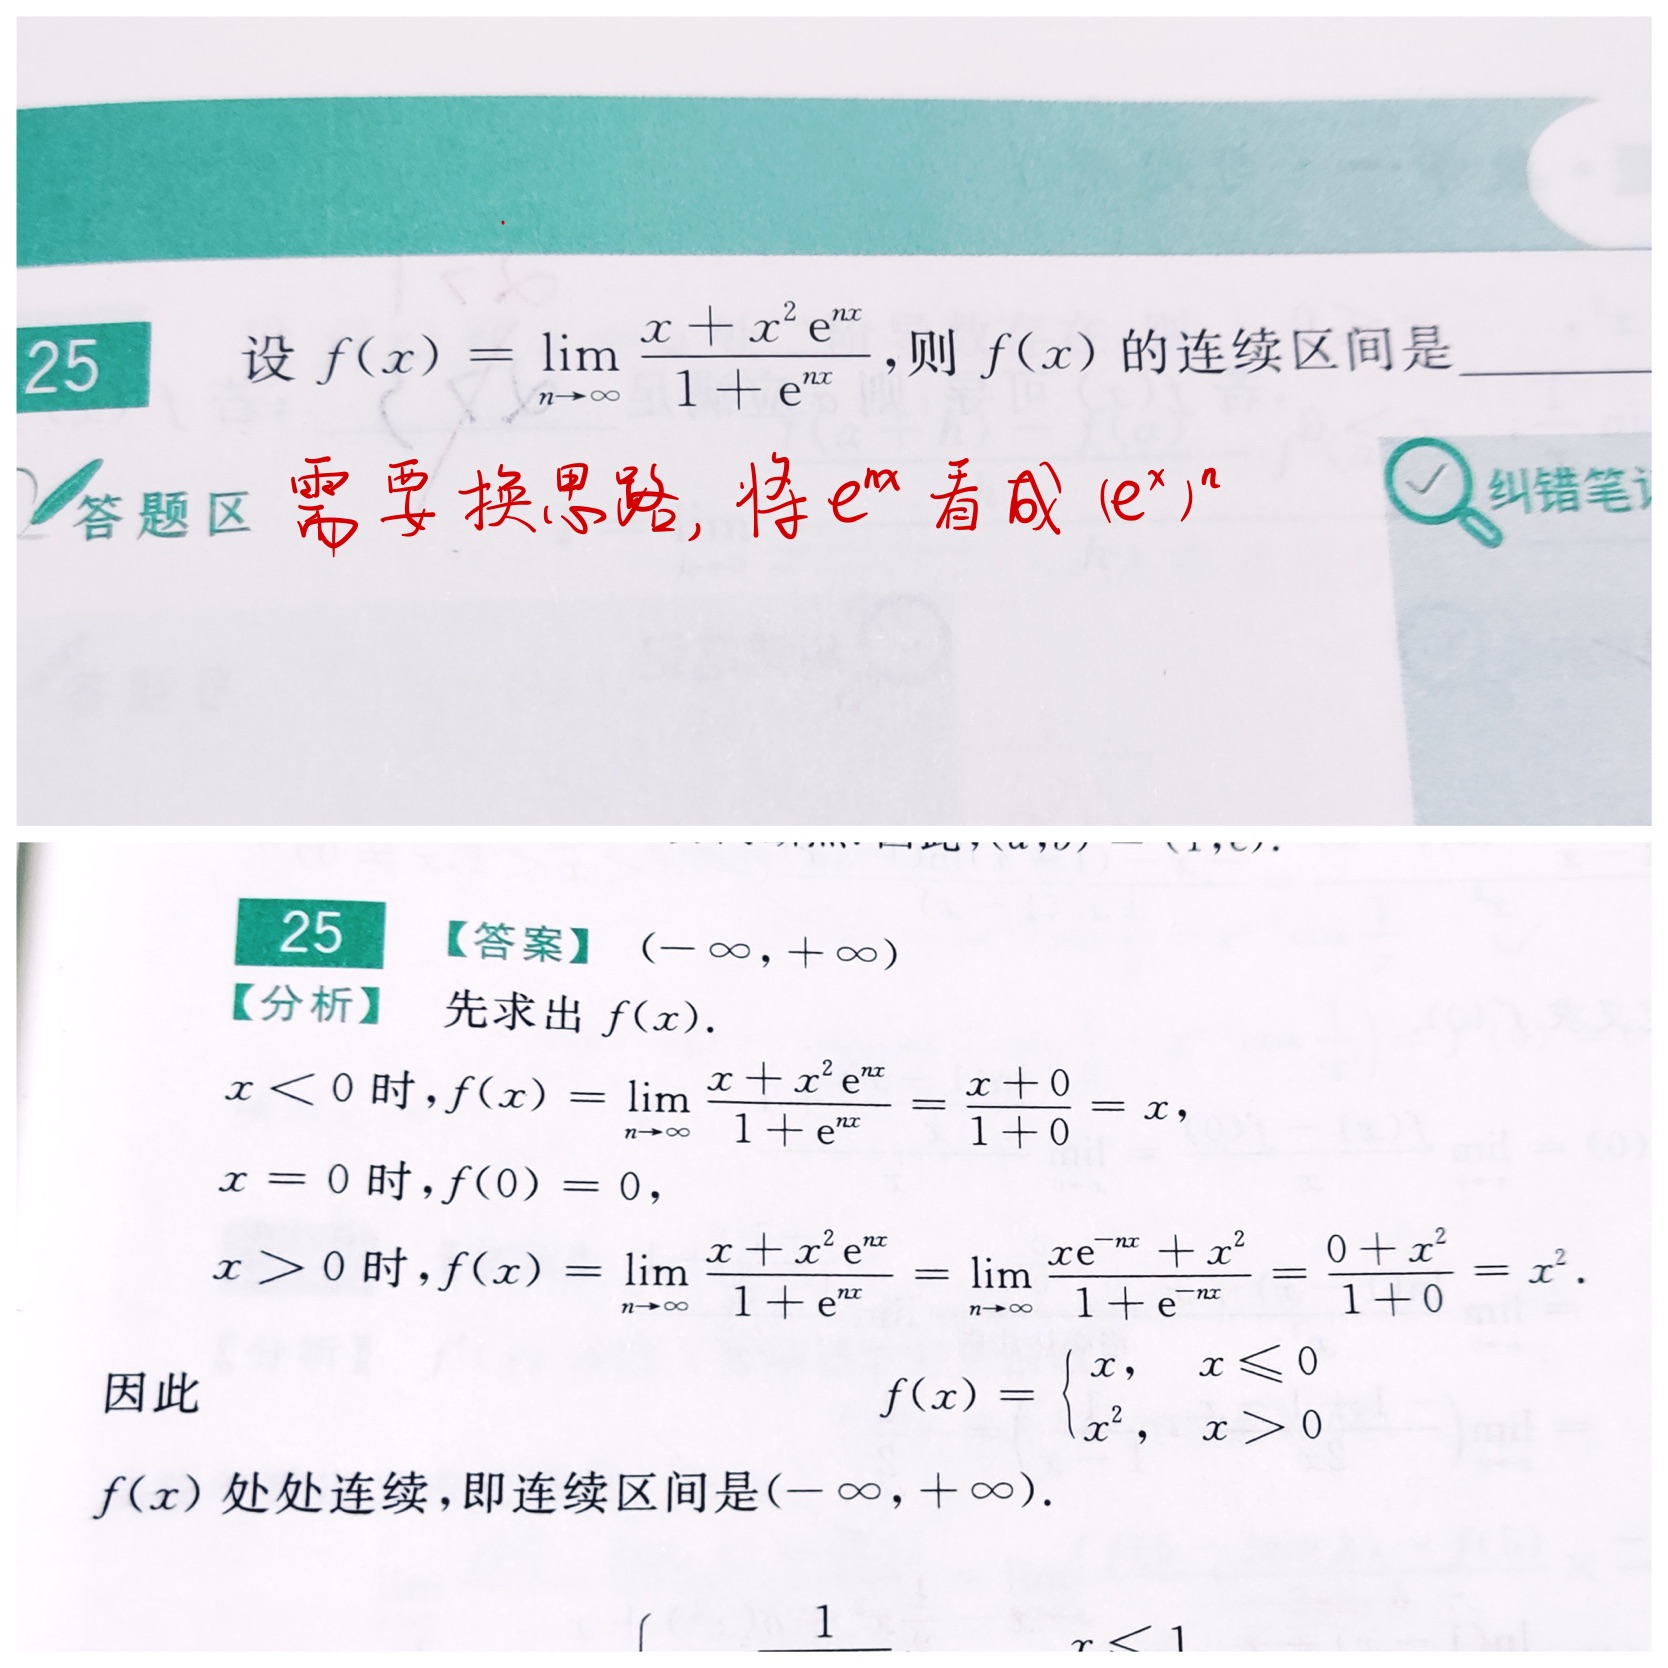 25 设 f(x) = lim_{n→∞} \frac{x + x² e^{nx}}{1 + e^{nx}}, 则 f(x) 的连续区间是______
答题区 需要换思路, 将 e^{nx} 看成 (e^x)^n
纠错笔
25 【答案】 (-∞, +∞)
【分析】 先求出 f(x).
x < 0 时, f(x) = lim_{n→∞} \frac{x + x² e^{nx}}{1 + e^{nx}} = \frac{x + 0}{1 + 0} = x,
x = 0 时, f(0) = 0,
x > 0 时, f(x) = lim_{n→∞} \frac{x + x² e^{nx}}{1 + e^{nx}} = lim_{n→∞} \frac{xe^{-nx} + x²}{1 + e^{-nx}} = \frac{0 + x²}{1 + 0} = x².
因此 f(x) = { x, x ⩽ 0
x², x > 0
f(x) 处处连续, 即连续区间是(-∞, +∞).